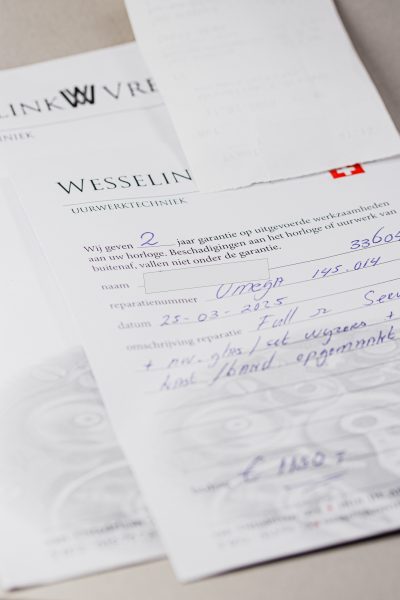 LINK W VRE
NIEK
WESSELIN
UURWERKTECHNIEK
Wij geven 2 jaar garantie op uitgevoerde werkzaamheden
aan uw horloge. Beschadigingen aan het horloge of uurwerk van
buitenaf, vallen niet onder de garantie.
naam
33604
reparatienummer Omega 145.014
datum 25-03-2025
omschrijving reparatie Full Ser
+ nw. glas / set wijzers +
kast / band opgemaakt
€ 1180